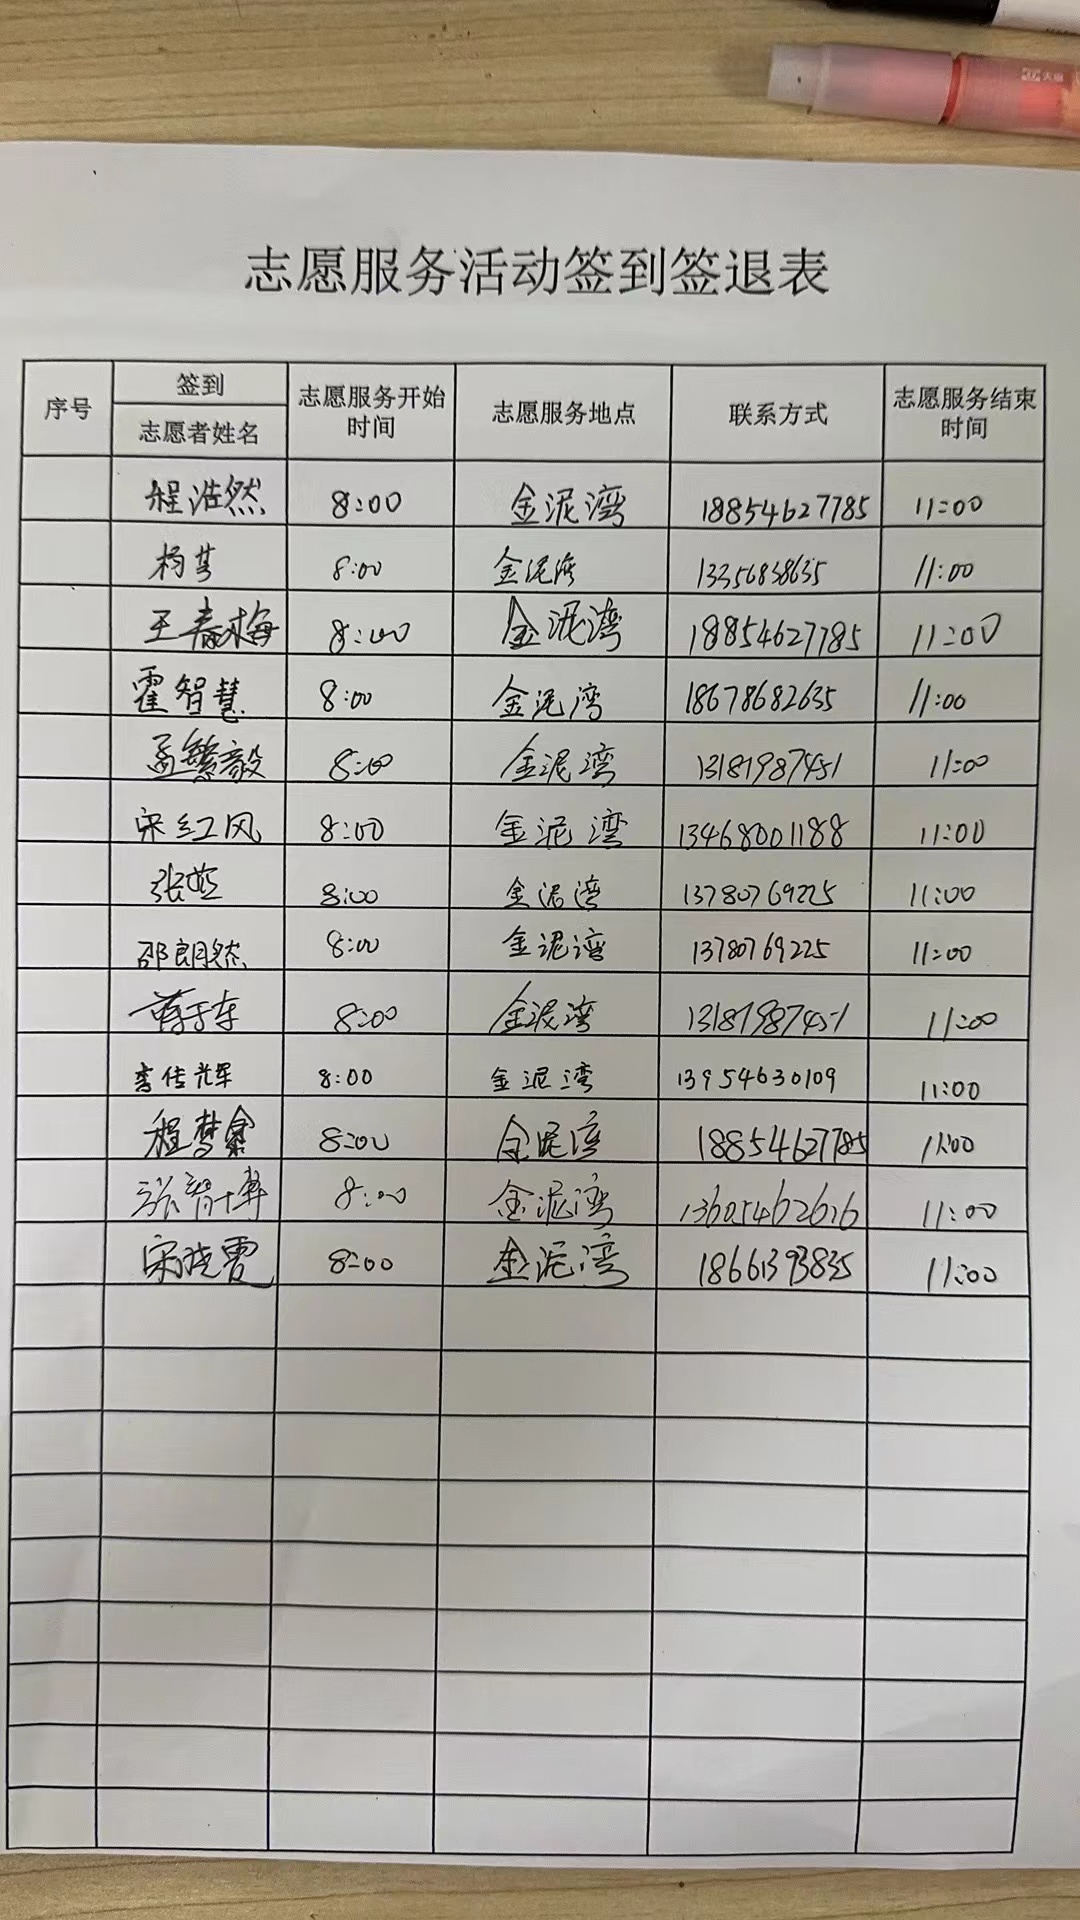 志愿服务活动签到签退表
序号 签到 志愿者姓名 志愿服务开始时间 志愿服务地点 联系方式 志愿服务结束时间
程浩然 8:00 金泥湾 18854627785 11:00
杨 8:00 金泥湾 13356838635 11:00
王春梅 8:00 金泥湾 18854627785 11:00
霍智慧 8:00 金泥湾 18678682635 11:00
孟繁毅 8:00 金泥湾 13181987451 11:00
宋红风 8:00 金泥湾 13468001188 11:00
张 8:00 金泥湾 13780769225 11:00
邵朗然 8:00 金泥湾 13780769225 11:00
8:00 金泥湾 13181987451 11:00
李传光军 8:00 金泥湾 13954630109 11:00
程梦 8:00 金泥湾 18854627785 11:00
张智博 8:00 金泥湾 13605462616 11:00
宋晓霞 8:00 金泥湾 18661393835 11:00